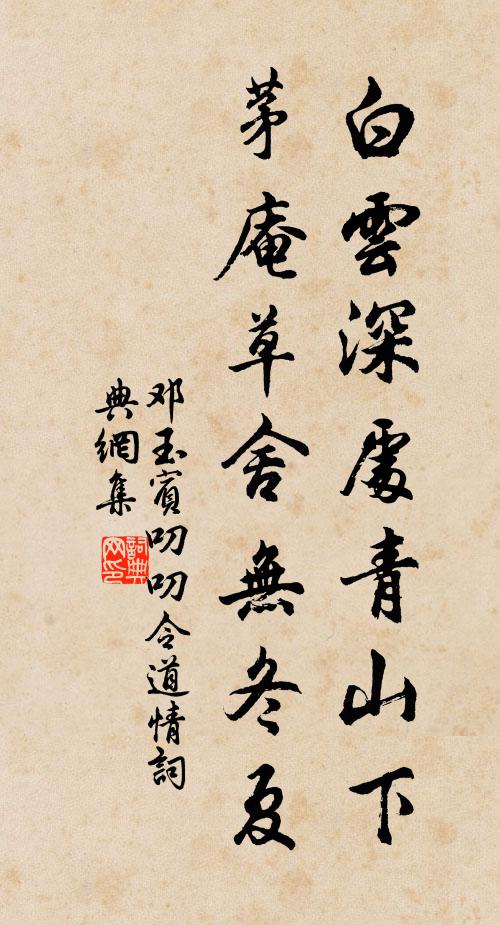 白雲深處青山下
茅庵草舍無冬夏
邓玉賓叨叨令道情詞
典網集
詞典
网印